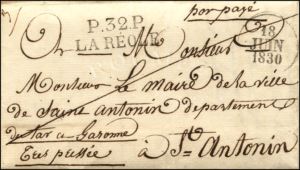 port payé
P.32.P.
LA RÉOLE
18
JUIN
1830
A Monsieur
Monsieur Le Maire de la ville
de Saint Antonin departement
de Tar et Garonne
Très pressée
à St. Antonin